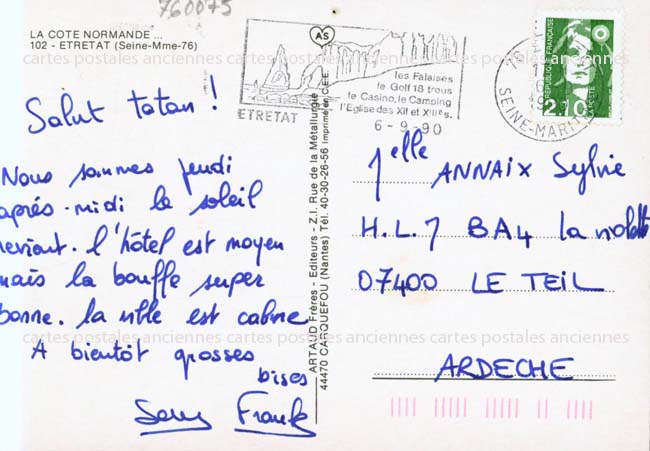 760075
LA COTE NORMANDE ...
102 - ETRETAT (Seine-Mme-76)
cartes postales anciennes cartes postales anciennes cartes postales anciennes
Salut tatan !
Nous sommes jeudi
après-midi le soleil
revient. l'hôtel est moyen
mais la bouffe super
bonne. la ville est calme
A bientôt grosses
bises
Franck
cartes postales anciennes cartes postales anciennes cartes postales anciennes
ARTAUD Frères - Editeurs - Z.I. Rue de la Métallurgie
44470 CARQUEFOU (Nantes) Tél. 40-30-26-56 Imprimé en C.E.E.
AS
les Falaises
le Golf 18 trous
le Casino, le Camping
l'Eglise des XII et XIIIes.
ETRETAT
6-9-90
76
SEINE-MARIT
REPUBLIQUE FRANÇAISE
2,10
LA POSTE
Melle ANNAIX Sylvie
H.L.7 BA4 la
07400 LE TEIL
ARDECHE